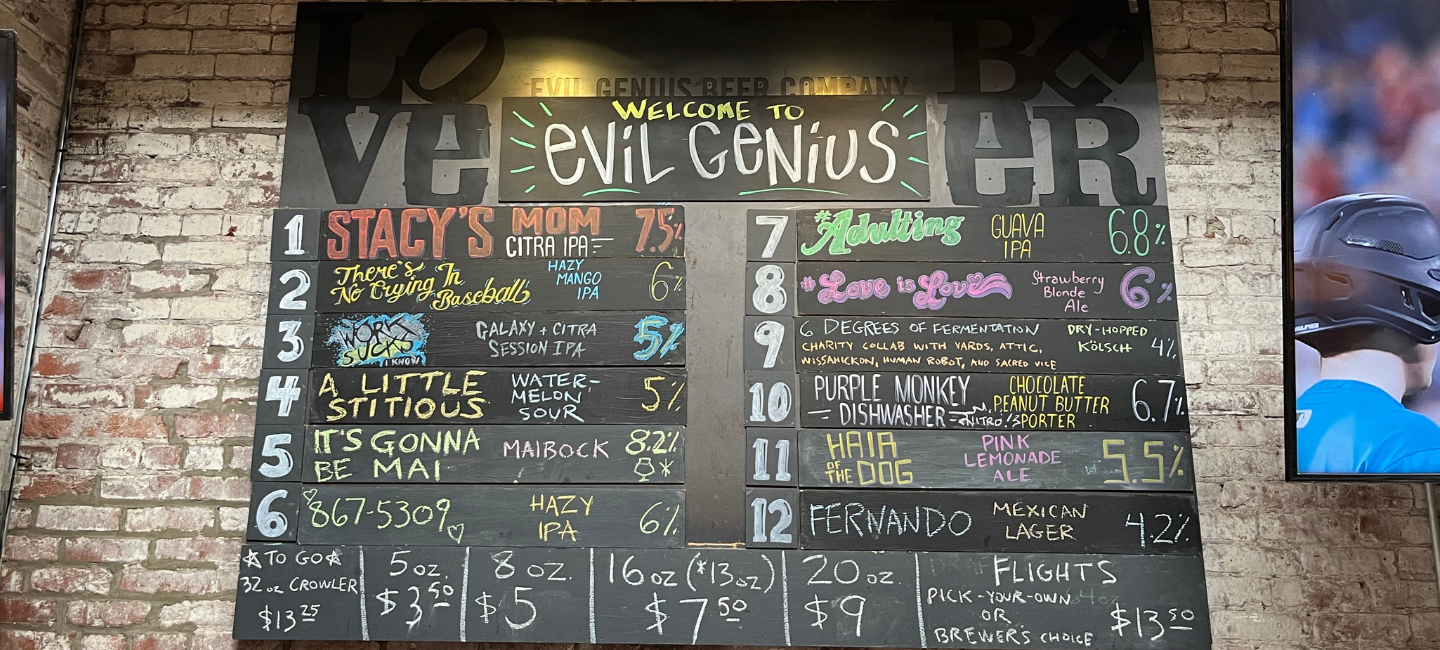 LO
VE
BE
ER
EVIL GENIUS BEER COMPANY
WELCOME TO
EVIL GENIUS
1 STACY'S MOM CITRA IPA 7.5%
2 There's No Crying In Baseball HAZY MANGO IPA 6%
3 WORK SUCKS I KNOW GALAXY + CITRA SESSION IPA 5%
4 A LITTLE STITIOUS WATER-MELON SOUR 5%
5 IT'S GONNA BE MAI MAIBOCK 8.2%
6 867-5309 HAZY IPA 6%
7 #Adulting GUAVA IPA 6.8%
8 #Love is Love Strawberry Blonde Ale 6%
9 6 DEGREES OF FERMENTATION DRY-HOPPED KÖLSCH 4%
CHARITY COLLAB WITH YARDS, ATTIC,
WISSAHICKON, HUMAN ROBOT, AND SACRED VICE
10 PURPLE MONKEY DISHWASHER NITRO! CHOCOLATE PEANUT BUTTER PORTER 6.7%
11 HAIR OF THE DOG PINK LEMONADE ALE 5.5%
12 FERNANDO MEXICAN LAGER 4.2%
TO GO
32 oz CROWLER
$13 25
5 oz.
$3 50
8 oz.
$5
16 oz (*13 oz)
$7 50
20 oz.
$9
FLIGHTS
PICK-YOUR-OWN
OR
BREWER'S CHOICE
$13 50